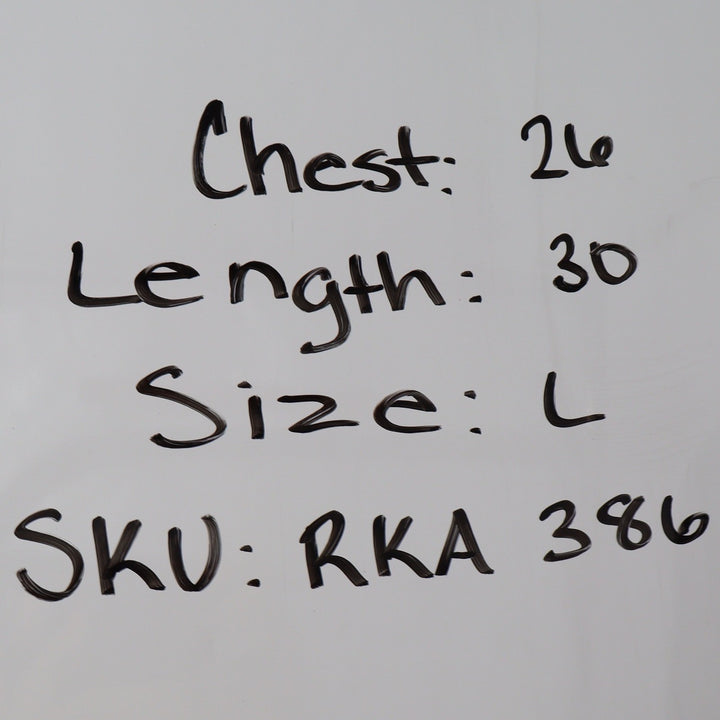 Chest: 26
Length: 30
Size: L
SKU: RKA 386